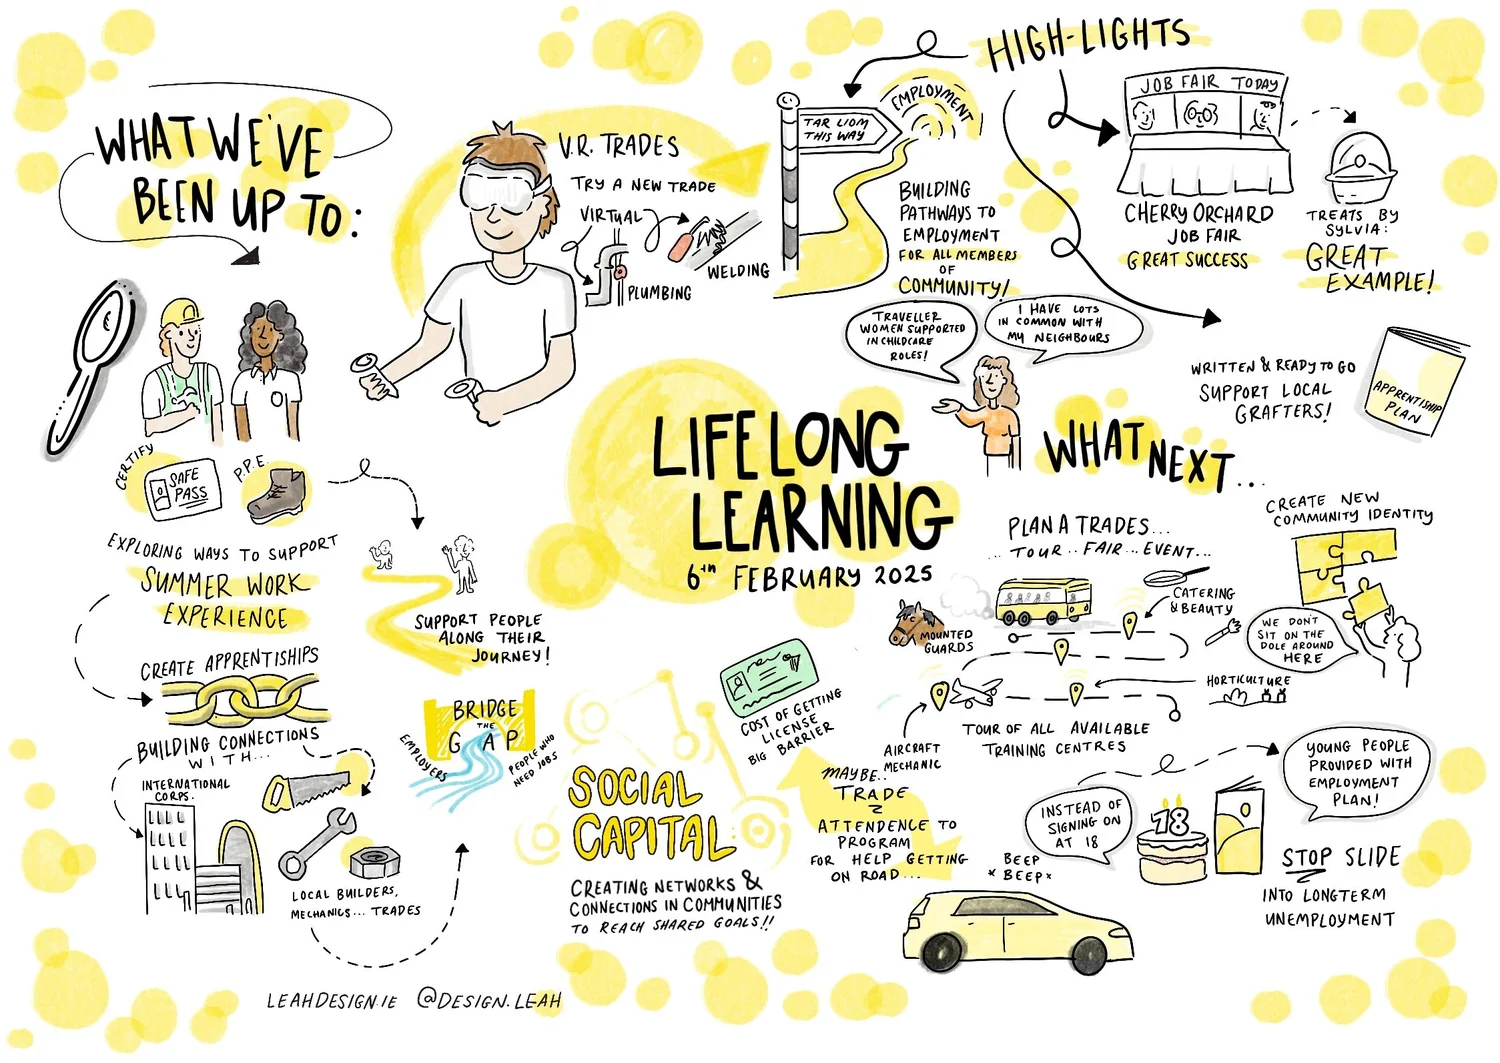 WHAT WE'VE
BEEN UP TO:
V.R. TRADES
TRY A NEW TRADE
VIRTUAL
WELDING
PLUMBING
CERTIFY
SAFE
PASS
P.P.E.
EXPLORING WAYS TO SUPPORT
SUMMER WORK
EXPERIENCE
SUPPORT PEOPLE
ALONG THEIR
JOURNEY!
CREATE APPRENTICESHIPS
BUILDING CONNECTIONS
WITH...
INTERNATIONAL
CORPS.
LOCAL BUILDERS,
MECHANICS... TRADES
BRIDGE
THE
GAP
EMPLOYERS
PEOPLE WHO
NEED JOBS
LIFELONG
LEARNING
6TH FEBRUARY 2025
SOCIAL
CAPITAL
CREATING NETWORKS &
CONNECTIONS IN COMMUNITIES
TO REACH SHARED GOALS!!
HIGH-LIGHTS
TAR LIOM
THIS WAY
EMPLOYMENT
BUILDING
PATHWAYS TO
EMPLOYMENT
FOR ALL MEMBERS
OF
COMMUNITY!
JOB FAIR TODAY
CHERRY ORCHARD
JOB FAIR
GREAT SUCCESS
TREATS BY
SYLVIA:
GREAT
EXAMPLE!
TRAVELLER
WOMEN SUPPORTED
IN CHILDCARE
ROLES!
I HAVE LOTS
IN COMMON WITH
MY NEIGHBOURS
WRITTEN & READY TO GO
SUPPORT LOCAL
GRAFTERS!
APPRENTISHIP
PLAN
WHAT NEXT...
PLAN A TRADES...
...TOUR...FAIR...EVENT...
CATERING
& BEAUTY
MOUNTED
GUARDS
HORTICULTURE
AIRCRAFT
MECHANIC
TOUR OF ALL AVAILABLE
TRAINING CENTRES
CREATE NEW
COMMUNITY IDENTITY
WE DON'T
SIT ON THE
DOLE AROUND
HERE
COST OF GETTING
LICENSE
BIG BARRIER
MAYBE..
TRADE
ATTENDENCE TO
PROGRAM
FOR HELP GETTING
ON ROAD...
BEEP
*BEEP*
INSTEAD OF
SIGNING ON
AT 18
18
YOUNG PEOPLE
PROVIDED WITH
EMPLOYMENT
PLAN!
STOP SLIDE
INTO LONGTERM
UNEMPLOYMENT
LEAHDESIGN.IE @DESIGN.LEAH